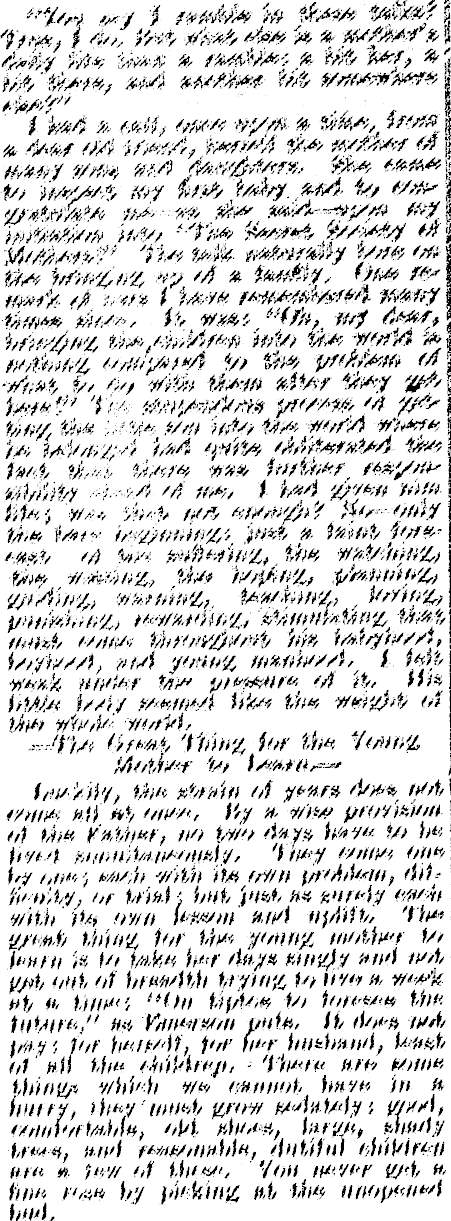 "You say I ramble in these talks?
True, I do, for what else is a mother's
daily life but a ramble; a bit here, a
bit there, and another bit somewhere
else?"
I had a call, once upon a time, from
a dear old friend, herself the mother of
many sons and daughters. She came
to inspect my first baby and to con-
gratulate me on the
initiation into "The Sacred Society of
Mothers." The talk naturally ran on
the bringing up of a family. One re-
mark of hers I have remembered many
times since. It was: "Oh, my dear,
bringing the children into the world is
nothing compared to the problem of
what to do with them after they get
here!" The stupendous process of get-
ting the little son into the world where
he belonged had quite obliterated the
fact that there was further respon-
sibility ahead of me. I had given him
life; was that not enough? No—only
the bare beginning; just a faint fore-
cast of the suffering, the watching,
the waiting, the hoping, planning,
guiding, warning, teaching, loving,
punishing, rewarding, stimulating that
must come throughout his babyhood,
boyhood, and young manhood. I felt
weak under the pressure of it. His
little body seemed like the weight of
the whole world.
—The Great Thing for the Young
Mother to Learn—
Luckily, the strain of years does not
come all at once. By a wise provision
of the Father, no two days have to be
lived simultaneously. They come one
by one; each with its own problem, dif-
ficulty, or trial; but just as surely each
with its own lesson and uplift. The
great thing for the young mother to
learn is to take her days singly and not
get out of breath trying to live a week
at a time; "On tiptoe to foresee the
future," as Emerson puts. It does not
pay; for herself, for her husband, least
of all the children. There are some
things which we cannot have in a
hurry, they must grow sedately; good,
comfortable, old shoes, large, shady
trees, and reasonable, dutiful children
are a few of these. You never get a
fine rose by picking at the unopened
bud.